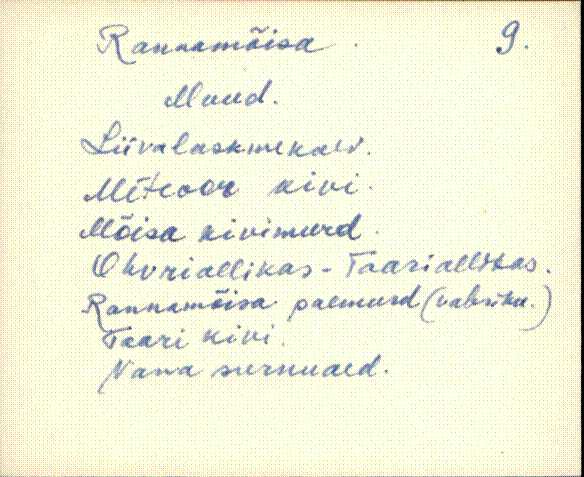 Rannamõisa. 9.
Muud.
Liivalaskmekaev.
Meteoor kivi.
Mõisa kivimurd.
Ohvriallikas - Taariallikas.
Rannamõisa paemurd (vabriku.)
Taari kivi.
Vana surnuaed.